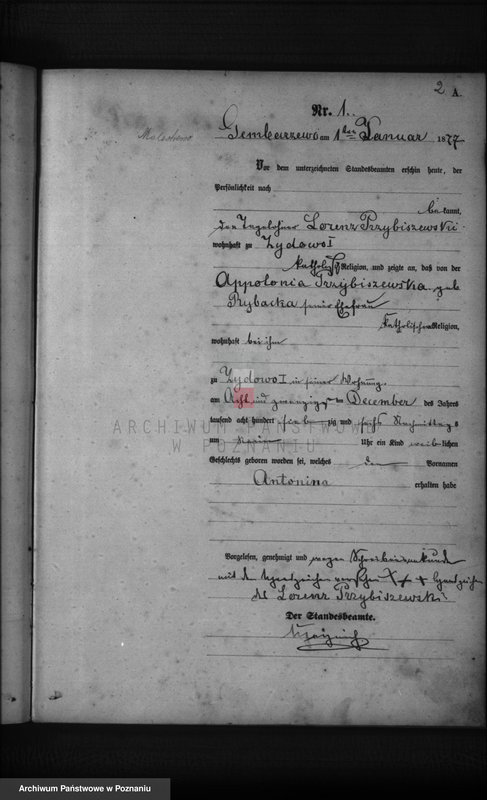 2 A.
Nr. 1.
Malachowo
Gembarzewo am 1ten Januar 1877
Vor dem unterzeichneten Standesbeamten erschien heute, der
Persönlichkeit nach
bekannt,
der Tagelöhner Lorenz Przybiszewski
wohnhaft zu Zydowo I
katholischer Religion, und zeigte an, daß von der
Appolonia Przybiszewska geb.
Rybacka seiner Ehefrau
katholischen Religion,
wohnhaft bei ihm
zu Zydowo I in seiner Wohnung,
am Acht und zwanzigsten December des Jahres
tausend acht hundert siebzig und sechs Nachmittags
um Uhr ein Kind weiblichen
Geschlechts geboren worden sei, welches den Vornamen
Antonina erhalten habe
ARCHIWUM PAŃSTWOWE
W POZNANIU
Vorgelesen, genehmigt und wegen Schreibensunkunde
mit dem Handzeichen versehen X++ Handzeichen
des Lorenz Przybiszewski
Der Standesbeamte.
Archiwum Państwowe w Poznaniu